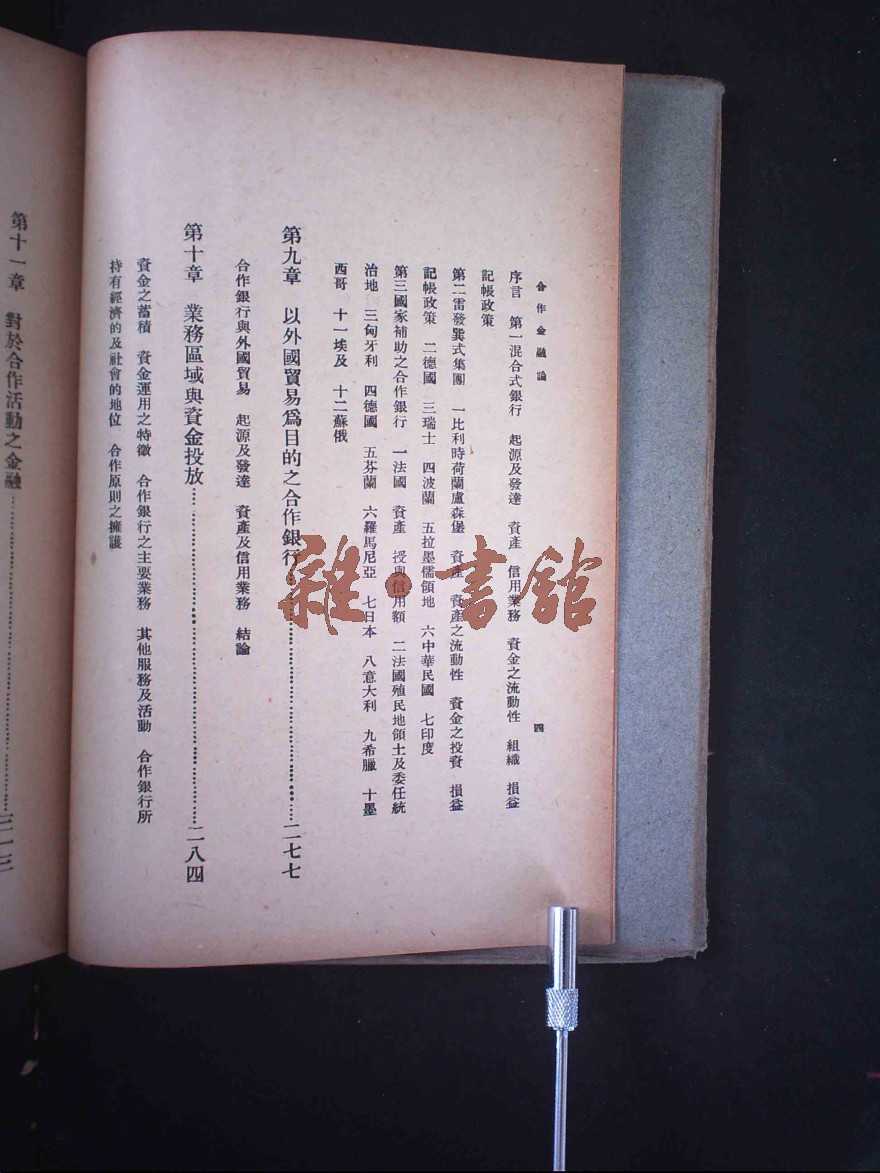 合作金融論
四
序言　第一混合式銀行　起源及發達　資產　信用業務　資金之流動性　組織　損益
記帳政策
第二雷發巽式集團　一比利時荷蘭盧森堡　資產　資產之流動性　資金之投資　損益
記帳政策　二德國　三瑞士　四波蘭　五拉墨儒領地　六中華民國　七印度
第三國家補助之合作銀行　一法國　資產　授與信用額　二法國殖民地領土及委任統
治地　三匈牙利　四德國　五芬蘭　六羅馬尼亞　七日本　八意大利　九希臘　十墨
西哥　十一埃及　十二蘇俄
第九章　以外國貿易爲目的之合作銀行……二七七
合作銀行與外國貿易　起源及發達　資產及信用業務　結論
第十章　業務區域與資金投放……二八四
資金之蓄積　資金運用之特徵　合作銀行之主要業務　其他服務及活動　合作銀行所
持有經濟的及社會的地位　合作原則之擁護
第十一章　對於合作活動之金融……三一三
雜·書館